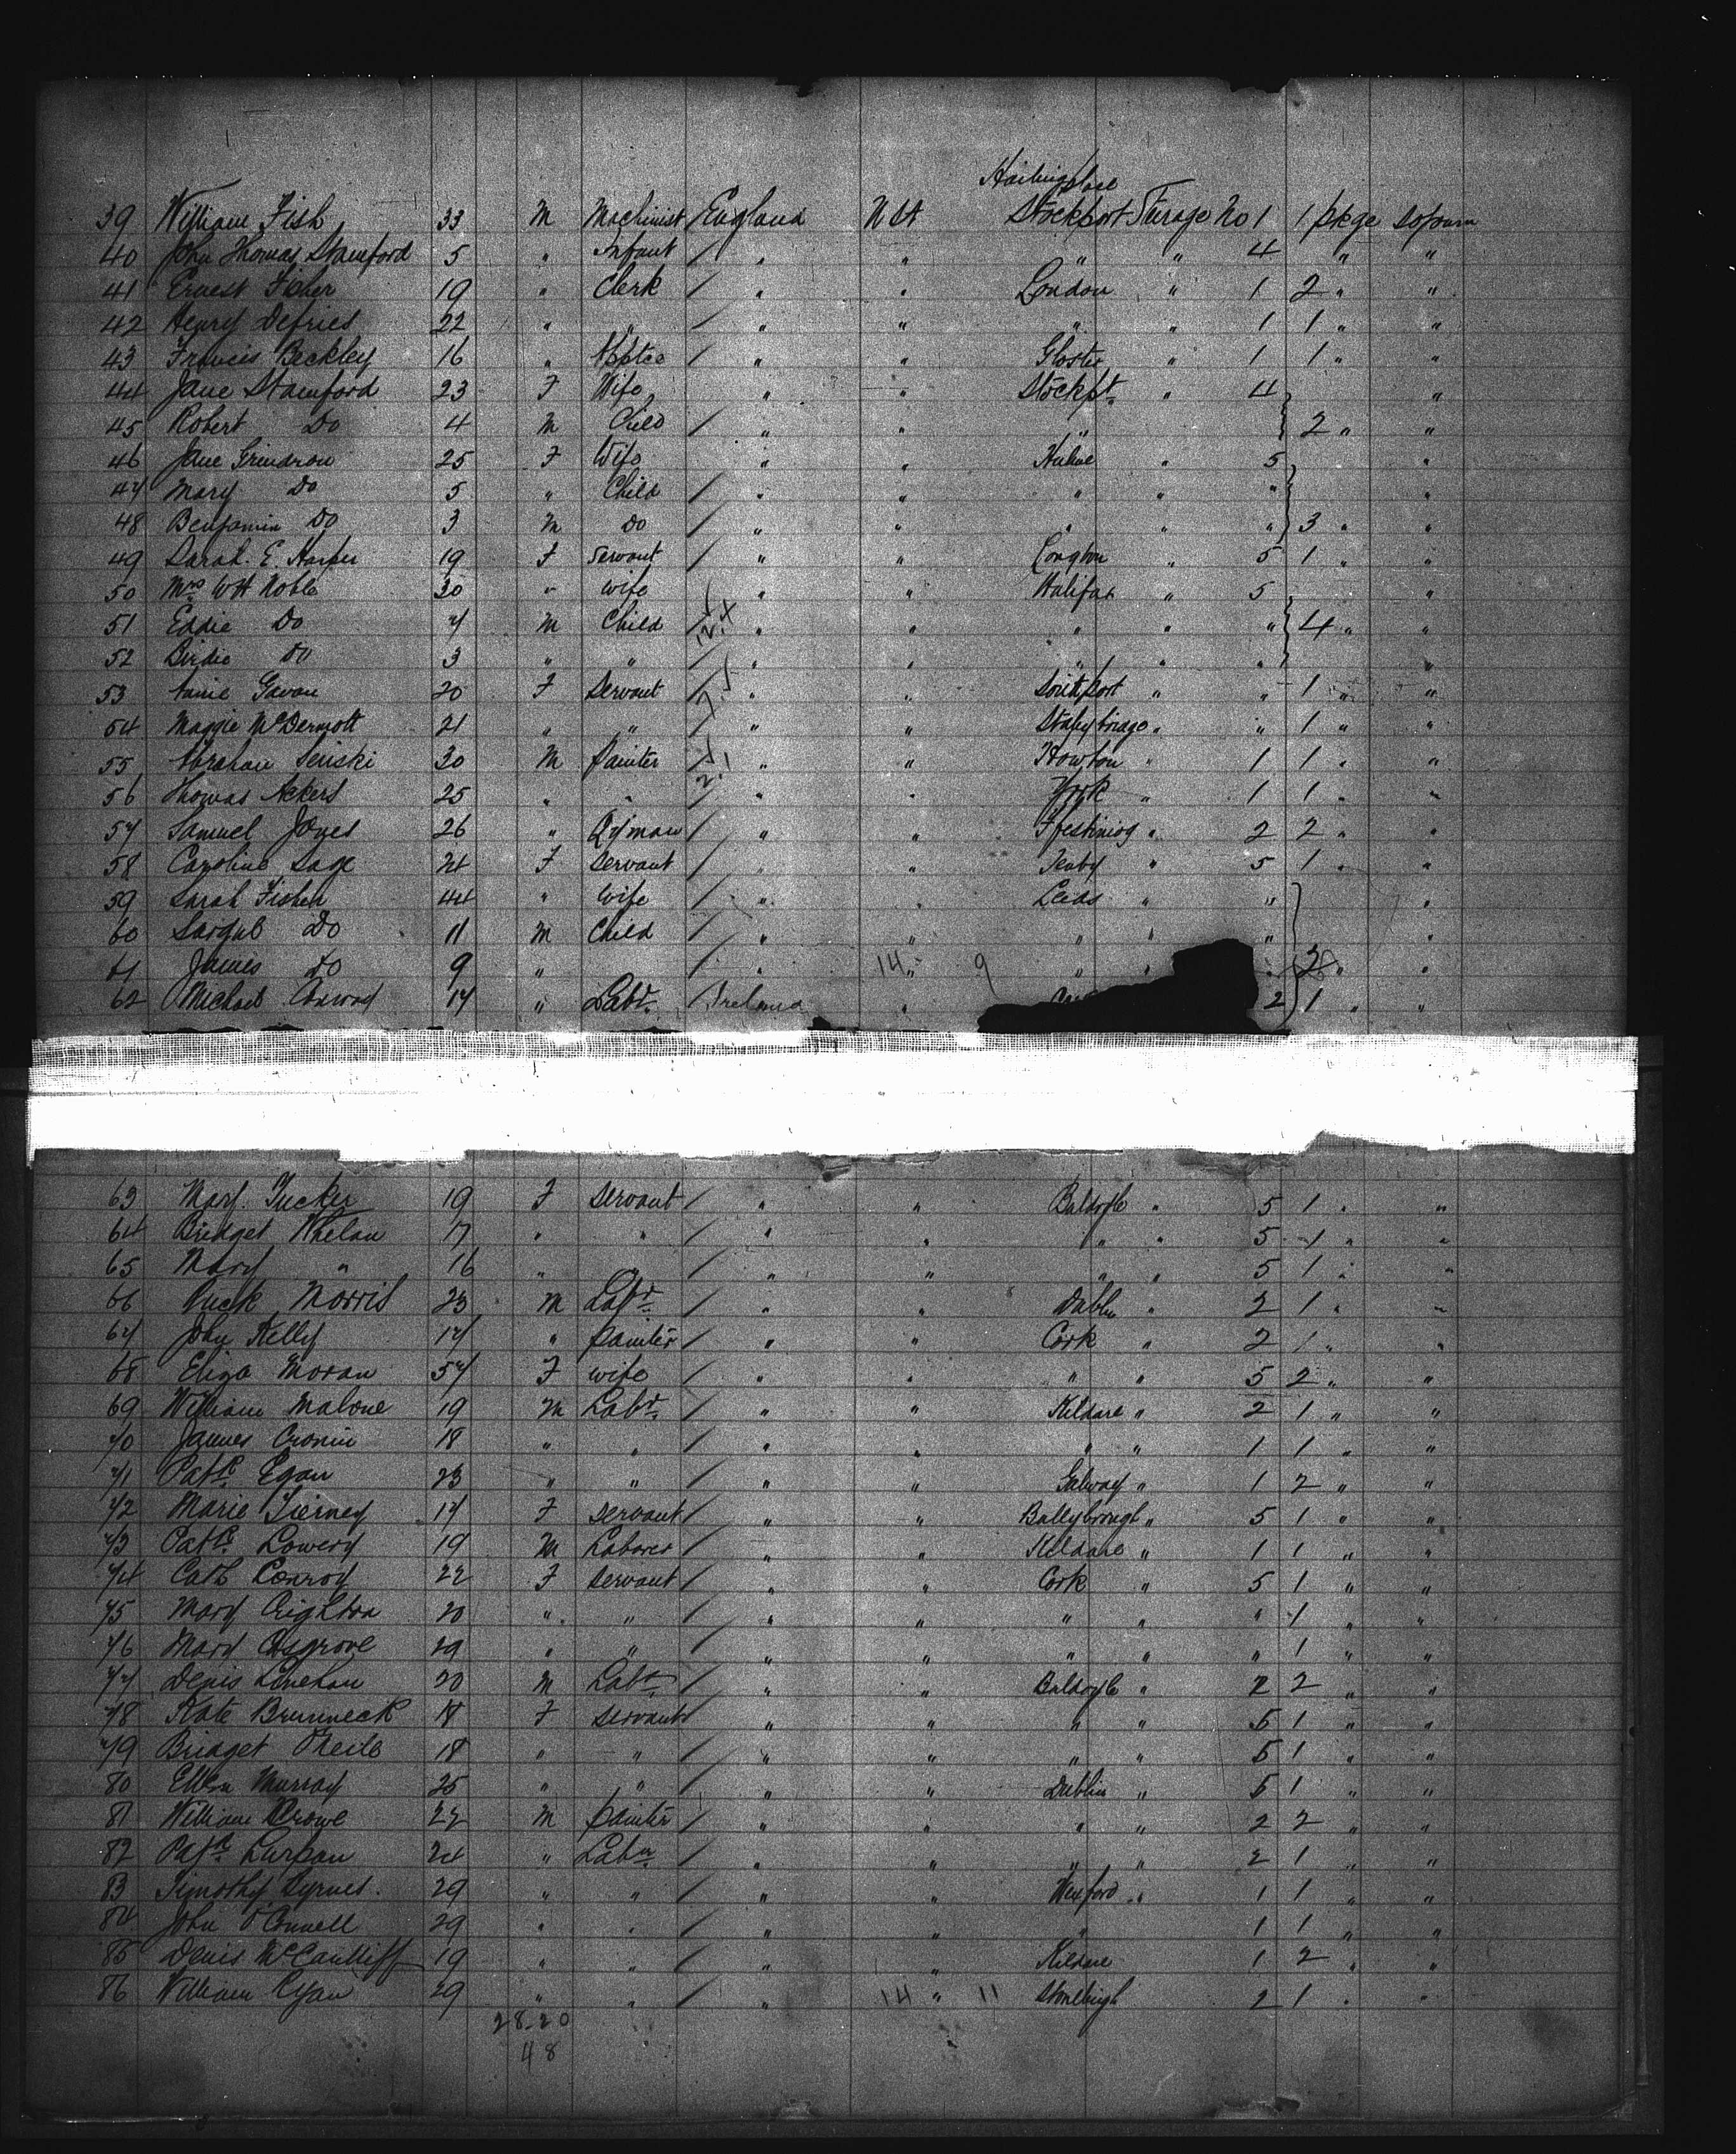 Hailing place
39 William Fish 33 M Machinist England NY Stockport Sterage No 1 1 pkge Sojourn
40 John Thomas Stamford 5 " Infant / " " " " 4 " "
41 Ernest Fisher 19 " Clerk / " " London " 1 2 " "
42 Henry Defries 22 " " / " " " " 1 1 " "
43 Francis Beckley 16 " / " " Gloster " 1 1 " "
44 Jane Stamford 23 F Wife " " Stockpt " 4 "
45 Robert Do 4 M Child / " " " 2 " "
46 Jane Grindrow 25 F Wife " " Hulme " 5 "
47 Mary Do 5 " Child / " " " " " "
48 Benjamin Do 3 M Do / " " " " " 3 " "
49 Sarah E. Harper 19 F Servant / " " " 5 1 " "
50 Mrs WH Noble 30 " wife " " Halifax " 5 "
51 Eddie Do 7 M Child / " " " " " 4 " "
52 Birdie Do 3 " " / " " " " " "
53 Annie Gavan 20 F Servant / " " Southport " " 1 " "
54 Maggie McDermott 21 " " / " " Stalybridge " " 1 " "
55 Abraham Senski 30 M Painter / " " " 1 1 " "
56 Thomas Akers 25 " " / " " York " 1 1 " "
57 Samuel Jones 26 " Qy'man / " " Ffestiniog " 2 2 " "
58 Caroline Sage 24 F Servant / " " Tenby " 5 1 " "
59 Sarah Fisher 44 " Wife / " " Leeds " " "
60 Do 11 M Child / " " " " " "
61 James Do 9 " / " 14 " 9 " " 2 " "
62 Michael Conway 17 " Labr. / Ireland " 2 1 " "
63 Mary Tucker 19 F Servant / " " Baldoyle " 5 1 " "
64 Bridget Whelan 17 " " / " " " " 5 1 " "
65 Mary " 16 " / " " " " 5 1 " "
66 Morris 23 M Labr / " " Dublin " 2 1 " "
67 John Kelly 17 " painter / " " Cork " 2 1 " "
68 Eliza Moran 57 F wife / " " " " 5 2 " "
69 William Malone 19 M Labr. / " " Kildare " 2 1 " "
70 James Cronin 18 " " / " " " " 1 1 " "
71 Patk Egan 23 " " / " " Galway " 1 2 " "
72 Marie Tierney 17 F Servant / " " Ballybrough " 5 1 " "
73 Patk Lowery 19 M Laborer / " " Kildare " 1 1 " "
74 Cath Conroy 22 F Servant / " " Cork " 5 1 " "
75 Mary Crighton 20 " " / " " " " " 1 " "
76 Mary Cosgrove 29 " " / " " " " " 1 " "
77 Denis Linehan 20 M Labr / " " Baldoyle " 2 2 " "
78 Kate Brunneck 18 F Servant / " " " " 5 1 " "
79 Bridget 18 " " / " " " " 5 1 " "
80 Ellen Murray 25 " " / " " Dublin " 5 1 " "
81 William Crowe 22 M painter / " " " " 2 2 " "
82 Patk 24 " Labr / " " " " 2 1 " "
83 Timothy Byrnes. 29 " " / " " Wexford " 1 1 " "
84 John O'Connell 29 " " / " " " 1 1 " "
85 Denis McCauliff 19 " " / " " Kildare 1 2 " "
86 William Ryan 29 " " / " 14 " 11 2 1 " "
28-20
48